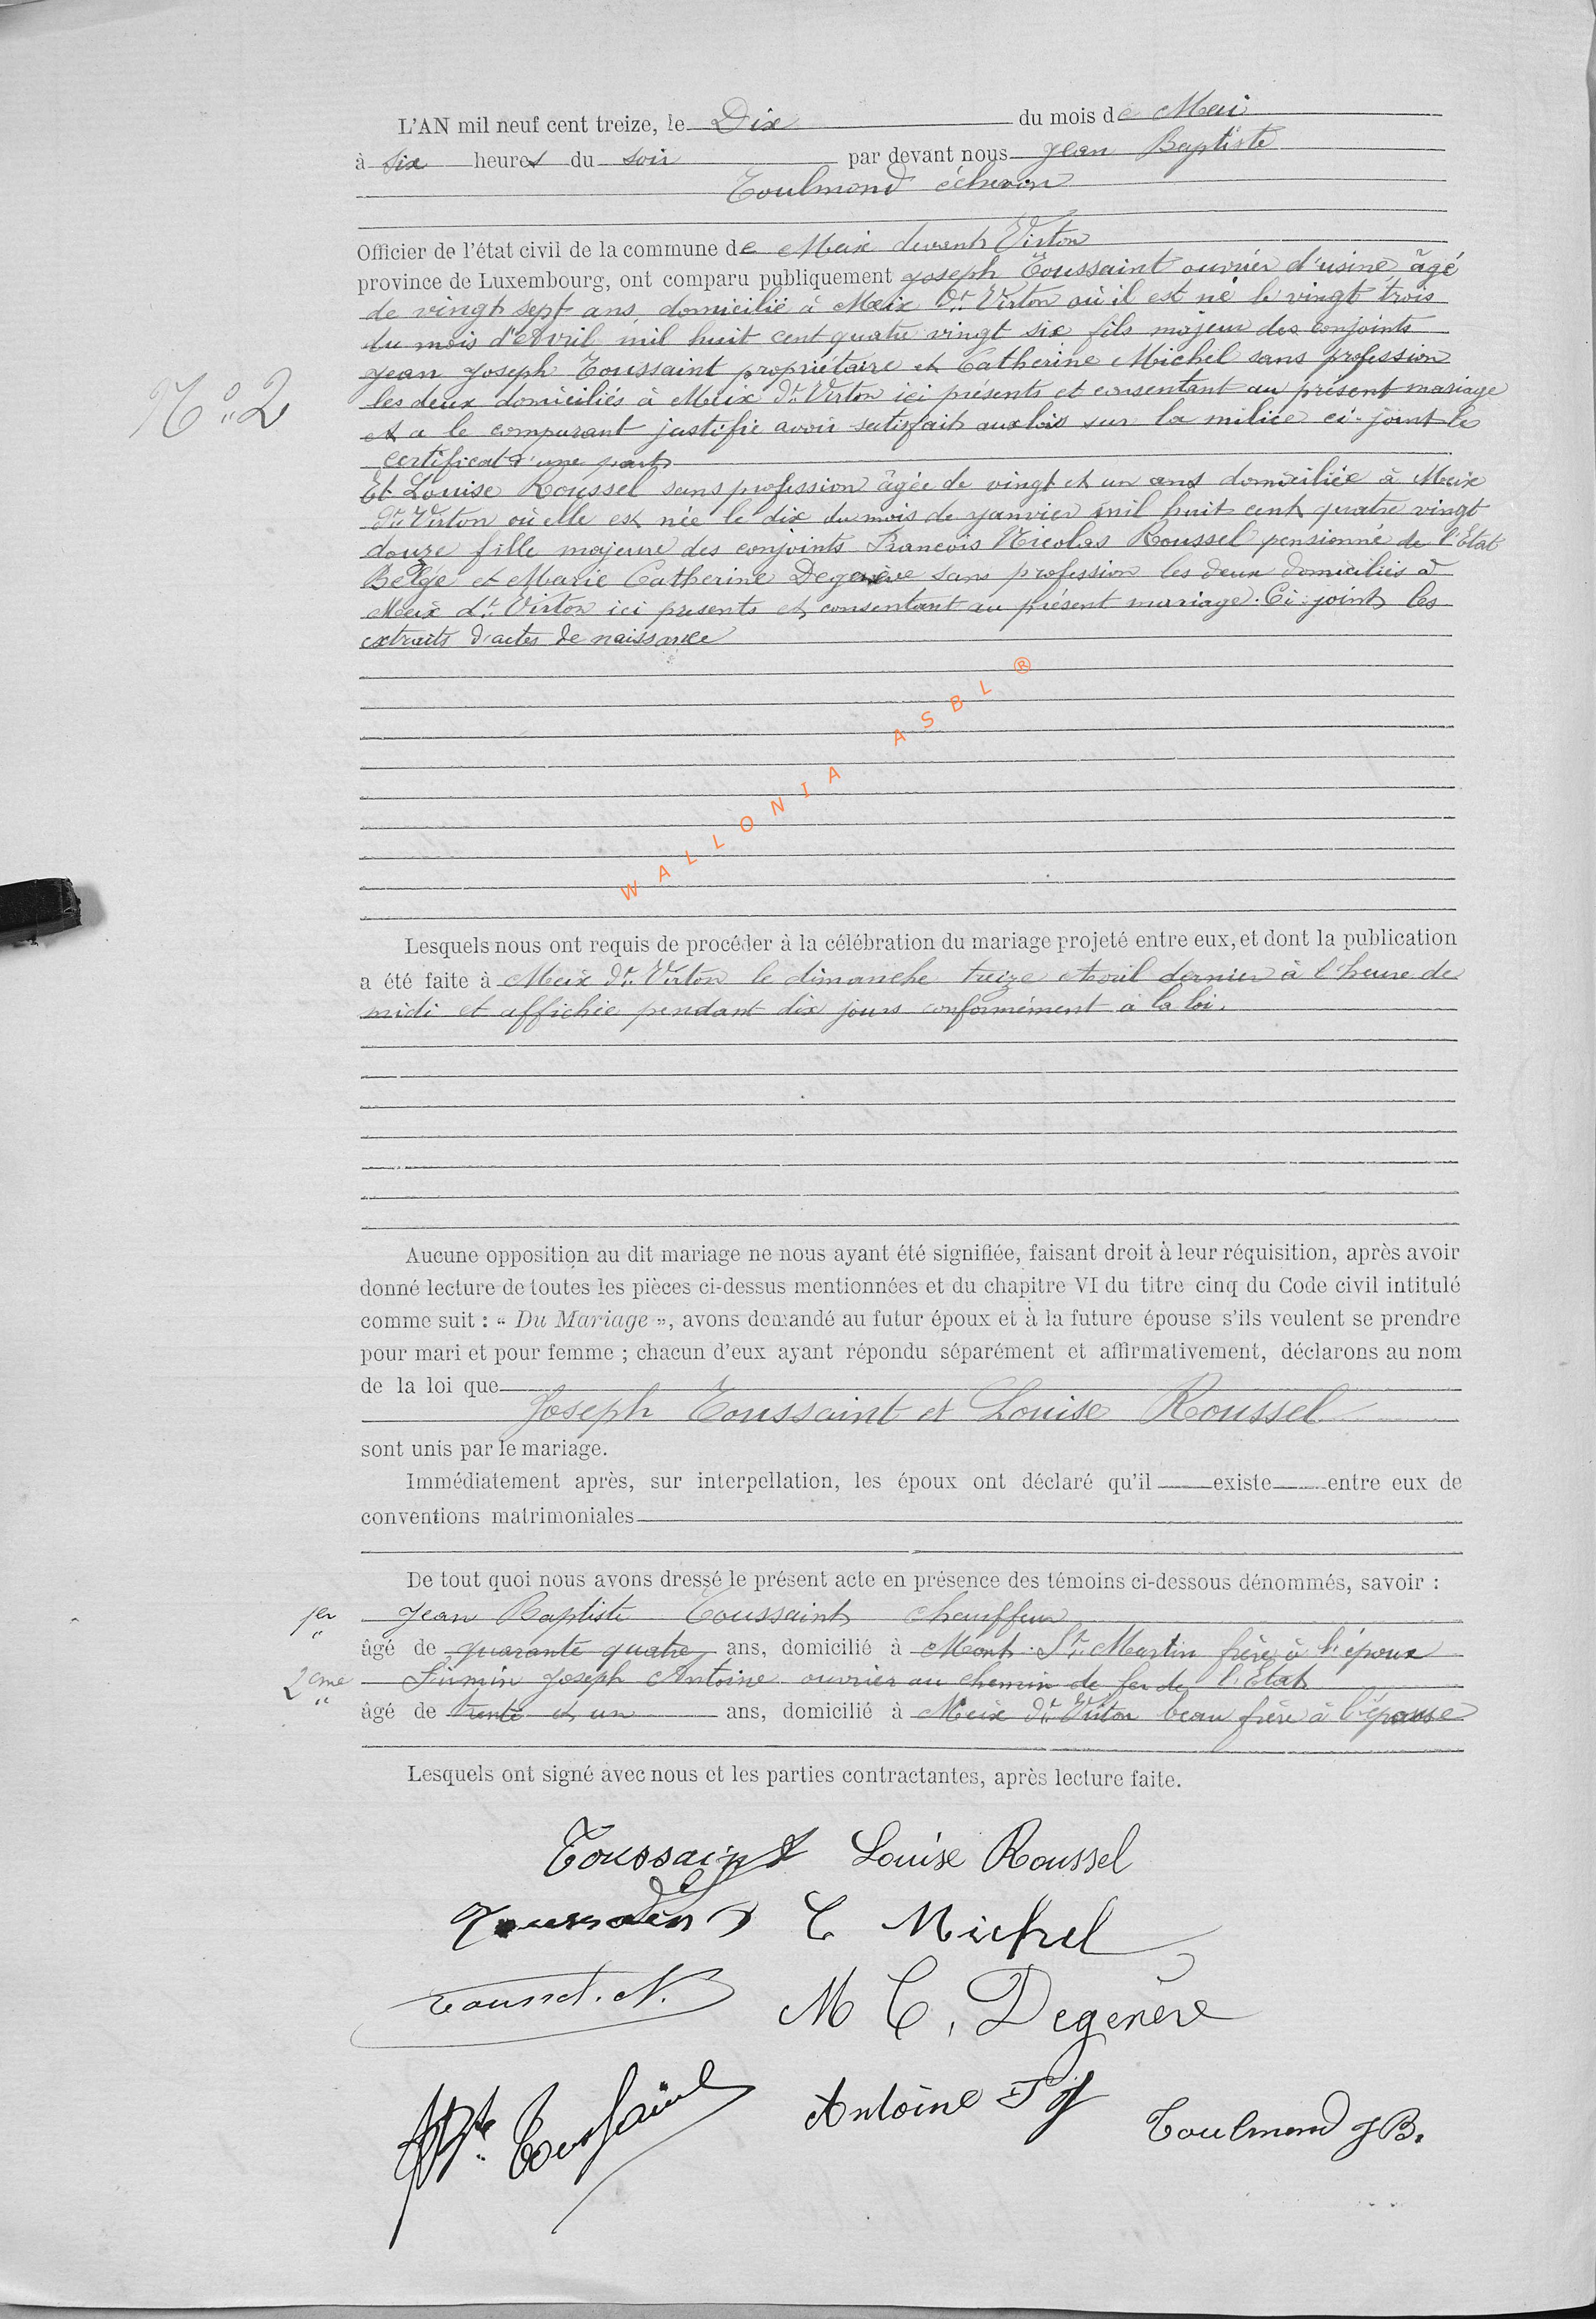 L'AN mil neuf cent treize, le Dix du mois de Mai
à six heures du soir par devant nous Jean Baptiste
Toulmond échevin
Officier de l'état civil de la commune de Meix devant Virton
province de Luxembourg, ont comparu publiquement Joseph Toussaint ouvrier d'usine âgé
de vingt sept ans, domicilié à Meix dt Virton où il est né le vingt trois
du mois d'Avril mil huit cent quatre vingt six fils majeur des conjoints
Jean Joseph Toussaint propriétaire et Catherine Michel sans profession
les deux domiciliés à Meix dt Virton ici présents et consentant au présent mariage
N° 2
et a le comparant justifié avoir satisfait aux lois sur la milice ci-joint le
certificat d'une part
Et Louise Roussel sans profession âgée de vingt et un ans domiciliée à Meix
dt Virton où elle est née le dix du mois de janvier mil huit cent quatre vingt
douze fille majeure des conjoints François Nicolas Roussel pensionné de l'Etat
Belge et Marie Catherine Degenève sans profession les deux domiciliés à
Meix dt Virton ici présents et consentant au présent mariage. Ci-joints les
extraits d'actes de naissance
WALLONIA ASBL ®
Lesquels nous ont requis de procéder à la célébration du mariage projeté entre eux, et dont la publication
a été faite à Meix dt Virton le dimanche treize Avril dernier à l'heure de
midi et affichée pendant dix jours conformément à la loi.
Aucune opposition au dit mariage ne nous ayant été signifiée, faisant droit à leur réquisition, après avoir
donné lecture de toutes les pièces ci-dessus mentionnées et du chapitre VI du titre cinq du Code civil intitulé
comme suit : « Du Mariage », avons demandé au futur époux et à la future épouse s'ils veulent se prendre
pour mari et pour femme ; chacun d'eux ayant répondu séparément et affirmativement, déclarons au nom
de la loi que
Joseph Toussaint et Louise Roussel
sont unis par le mariage.
Immédiatement après, sur interpellation, les époux ont déclaré qu'il existe entre eux de
conventions matrimoniales
De tout quoi nous avons dressé le présent acte en présence des témoins ci-dessous dénommés, savoir :
1er Jean Baptiste Toussaint chauffeur
âgé de quarante quatre ans, domicilié à Mont-St-Martin frère à l'époux
2eme Firmin Joseph Antoine ouvrier au chemin de fer de l'Etat
âgé de trente et un ans, domicilié à Meix dt Virton beau frère à l'épouse
Lesquels ont signé avec nous et les parties contractantes, après lecture faite.
Toussaint Louise Roussel
Toussaint C Michel
Roussel. N. M C. Degenève
JBte Toussaint Antoine F J Toulmond JB.